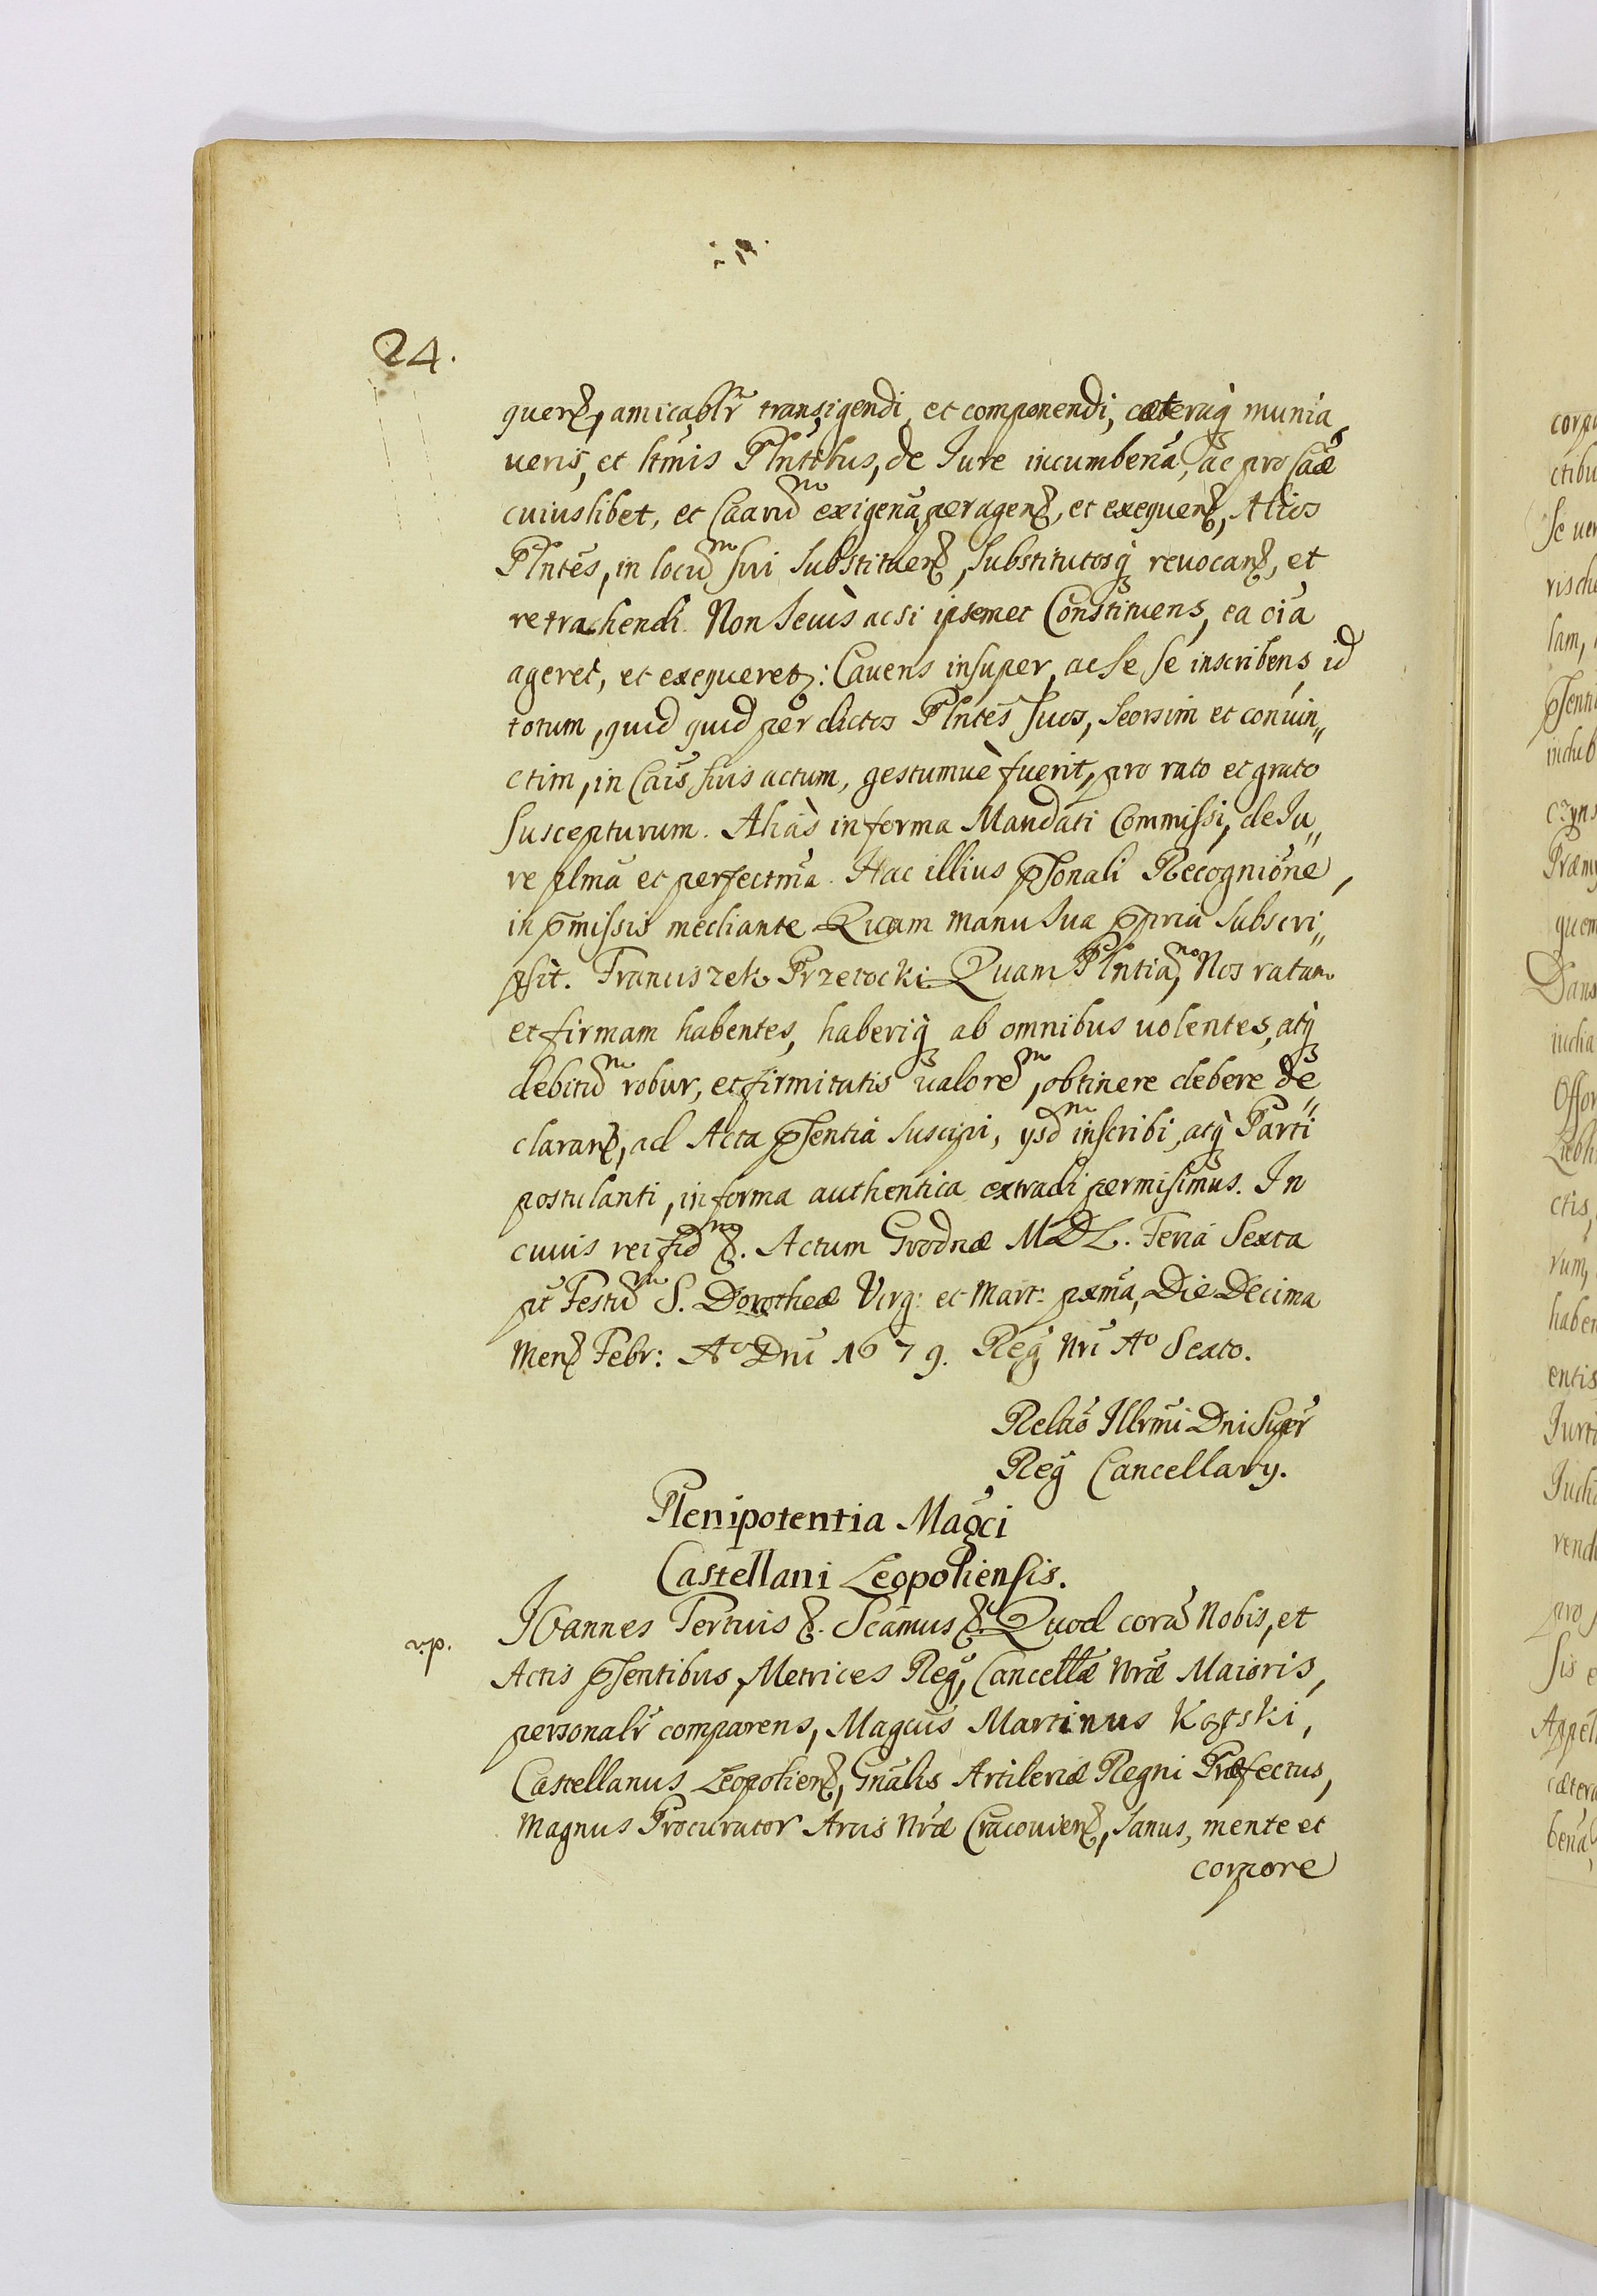 24.
querē, amicablr̃ transigendi, et componendi, cæteraq̃ munia
veris, et ltmis Plntibus, de Jure incumbeña, ac pro Caæ
cuiuslibet, et Caarum exigeña peragenȝ, et exequenȝ, Alios
Plntes, in locum sui substituenȝ, substitutosq̃ revocanȝ, et
retrahendi. Non Secùs ac si ipsemet Constituens, ea oia
ageret, et exequeretȝ: Cavens insuper, ac se se inscribens id
totum, quid quid per dictos Plntes suos, seorsim et coniun„
ctim, in Cais suis actum, gestumuè fuerit, pro rato et grato
suscepturum. Aliàs in forma Mandati Commissi, de Ju„
re plma et perfectma. Hac illius p̃sonali Recognione,
in p̃missis mediante. Quam manu sua p̃pria subscri„
psit. Franciszek Przerocki. Quam Plntiam, Nos ratam
et firmam habentes, haberiq̃ ab omnibus volentes, atq̃
debitum robur, et firmitatis valorem, obtinere debere de„
claranȝ, ad Acta p̃sentia suscipi, ysdem inscribi, atq̃ Parti
postulanti, in forma authentica extradi permisimus. In
cuius rei fidem &. Actum Grodnæ MDL. Feria Sexta
pt Festum S. Dorotheæ Virg: et Mart: pxma, Die Decima
Menȝ Febr: Ao Dni 1679. Reg̃ Nri Ao Sexto.
Relao Illrmi Dni Supr̃
Reg̃ Cancellary.
Plenipotentia Magci
Castellani Leopoliensis.
v.p.
Joannes Tertius &. Scamus & Quod corã Nobis, et
Actis p̃sentibus, Metrices Reg̃, Cancellæ Nræ Maioris,
personalr̃ comparens, Magcus Martinus Kątski,
Castellanus Leopolienȝ, Gnalis Artileriæ Regni Præfectus,
Magnus Procurator Arcis Nræ Cracovienȝ, sanus, mente et
corpore